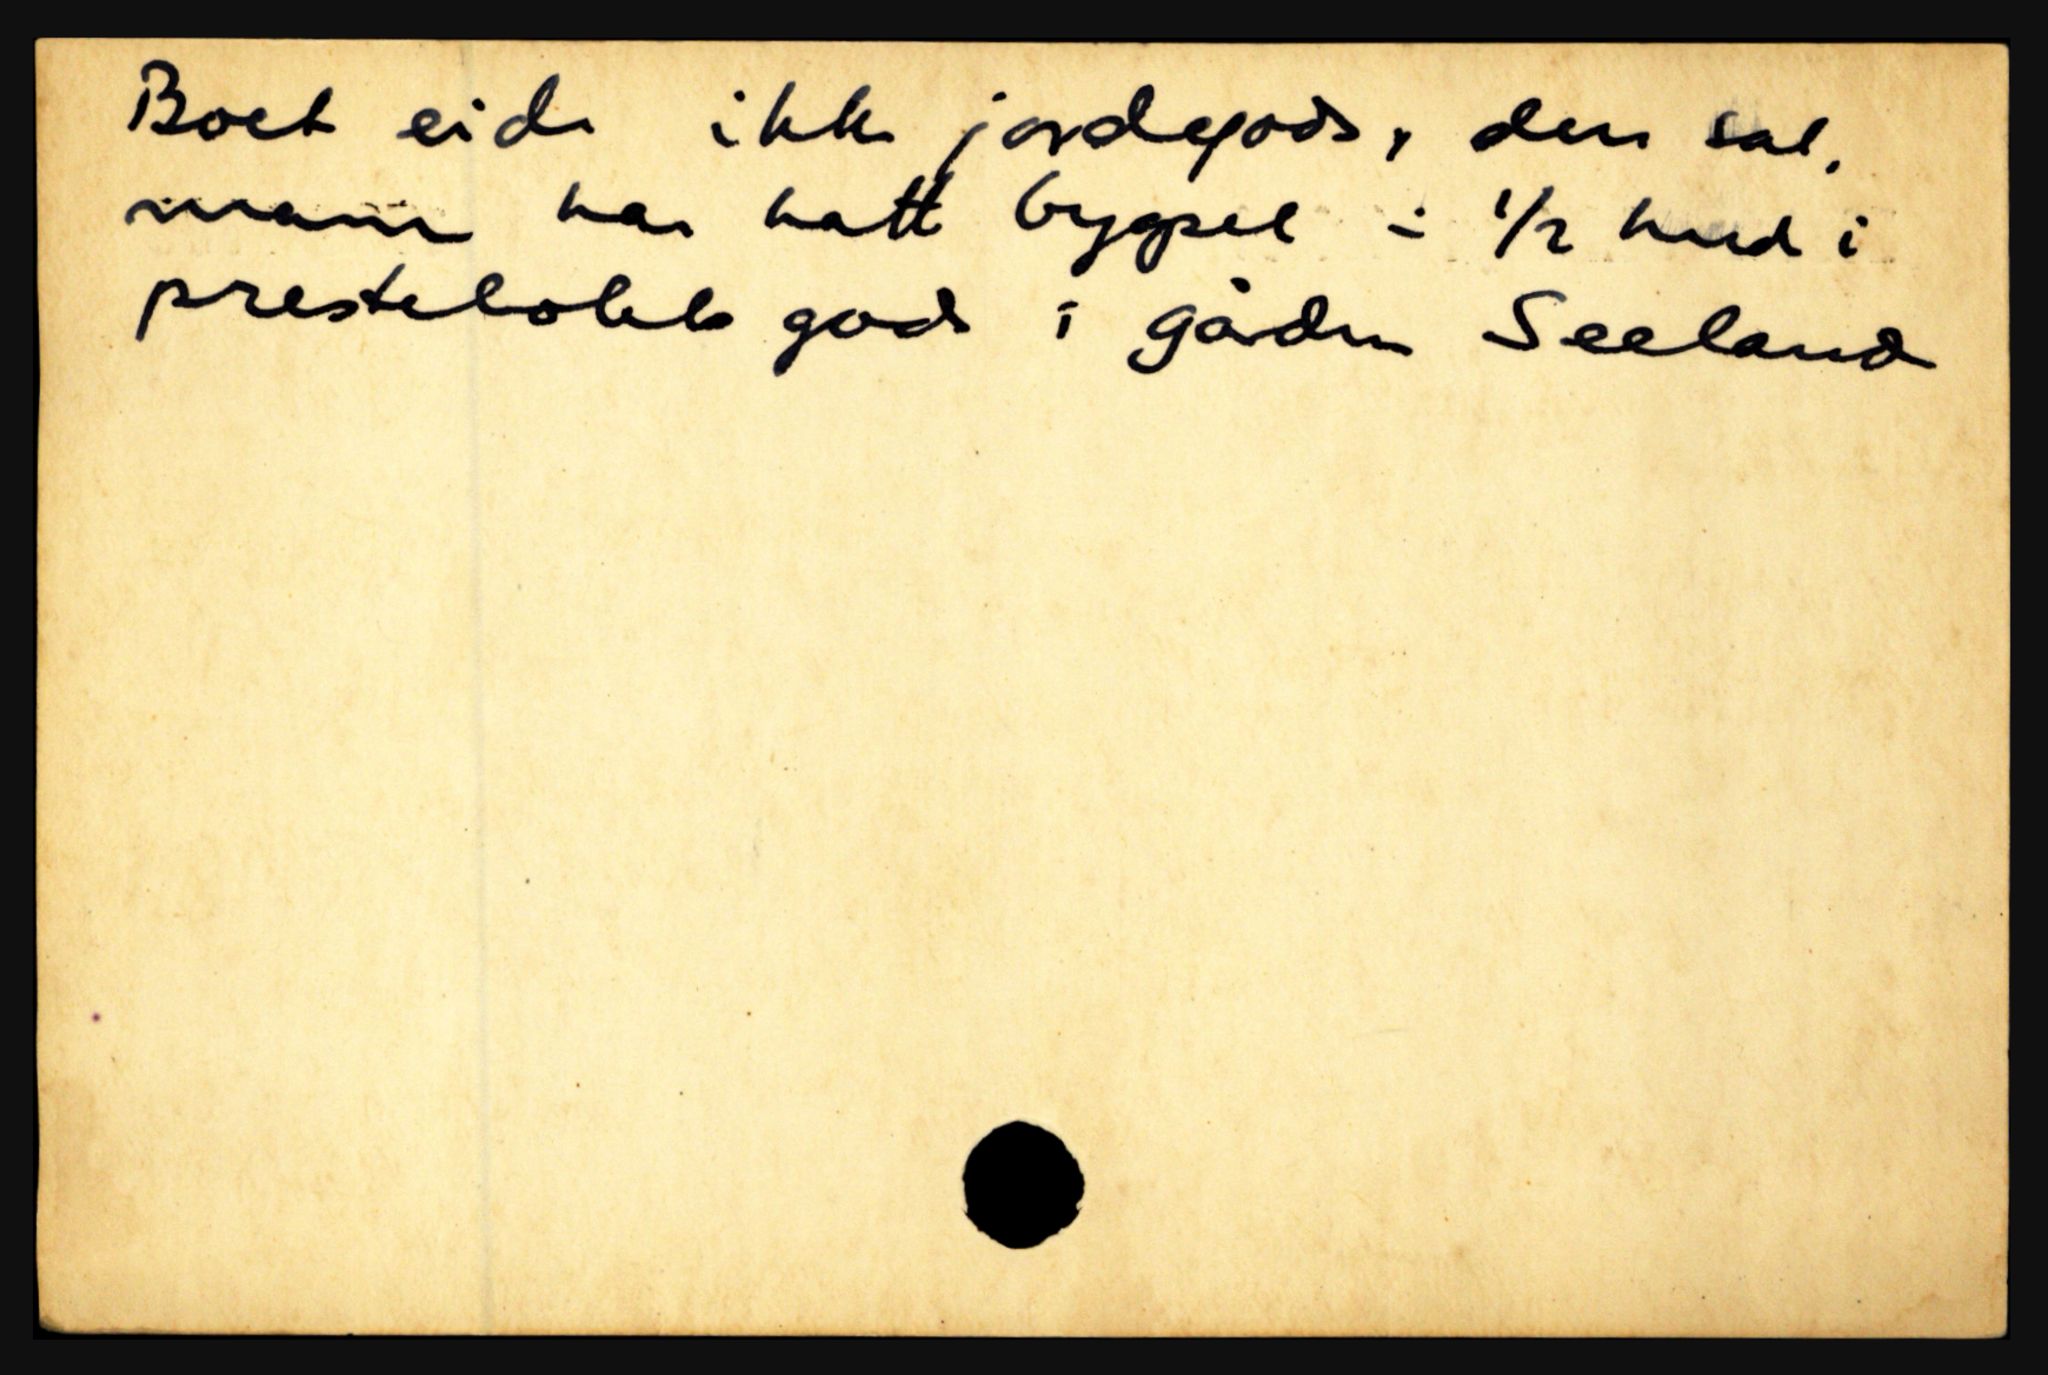 Boet eide ikke jordegods, den sal.
mann har hatt bygsel i 1/2 hud i
prestebolets gods i gården Seeland